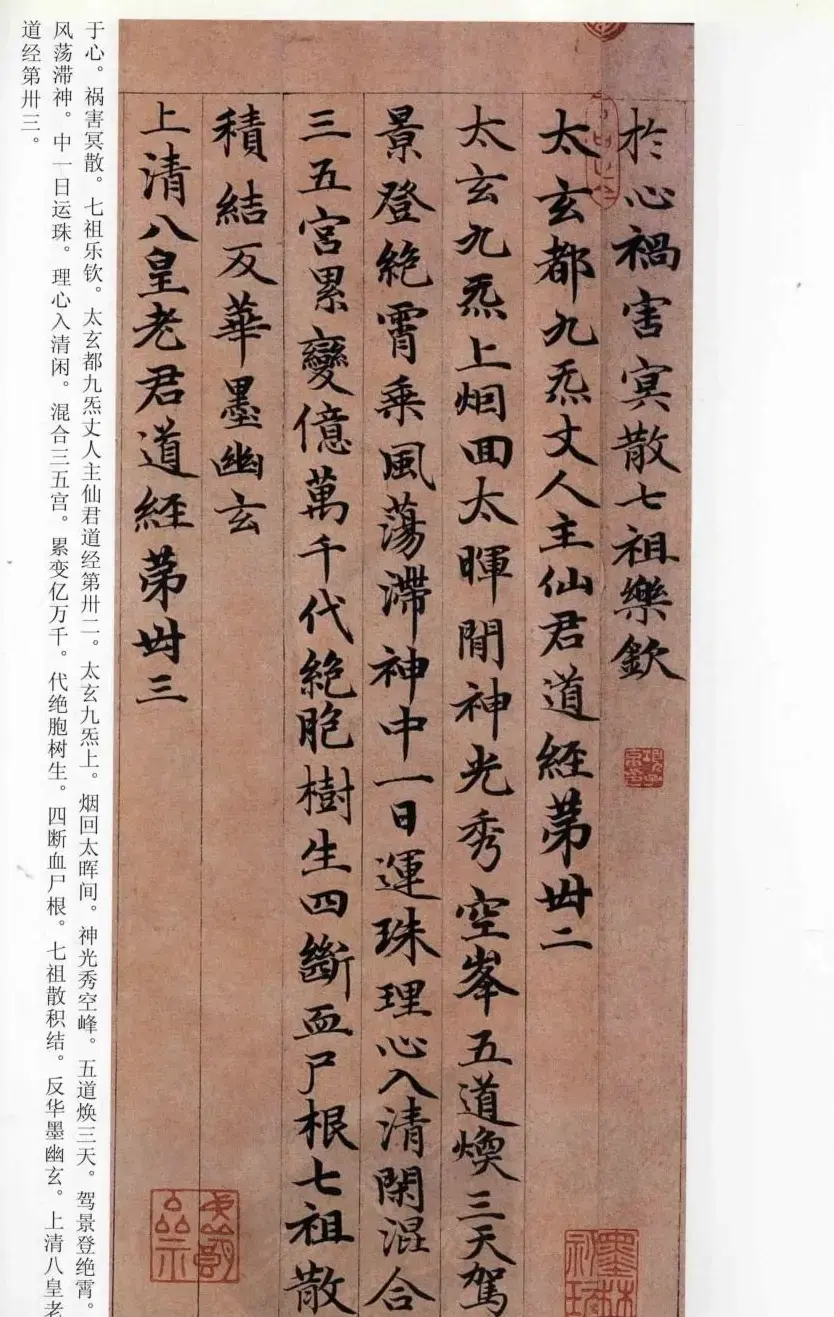 於心禍害冥散七祖樂欽
太玄都九炁丈人主仙君道經苐卌二
太玄九炁上烟回太暉閒神光秀空峯五道煥三天駕
景登絶霄乗風蕩滯神中一日運珠理心入清閑混合
三五宮累變億萬千代絶胞樹生四斷血尸根七祖散
積結反華墨幽玄
上清八皇老君道經苐卌三
于心。祸害冥散。七祖乐钦。太玄都九炁丈人主仙君道经第卅二。太玄九炁上。烟回太晖间。神光秀空峰。五道焕三天。驾景登绝霄。
风荡滞神。中一日运珠。理心入清闲。混合三五宫。累变亿万千。代绝胞树生。四断血尸根。七祖散积结。反华墨幽玄。上清八皇老
道经第卅三。